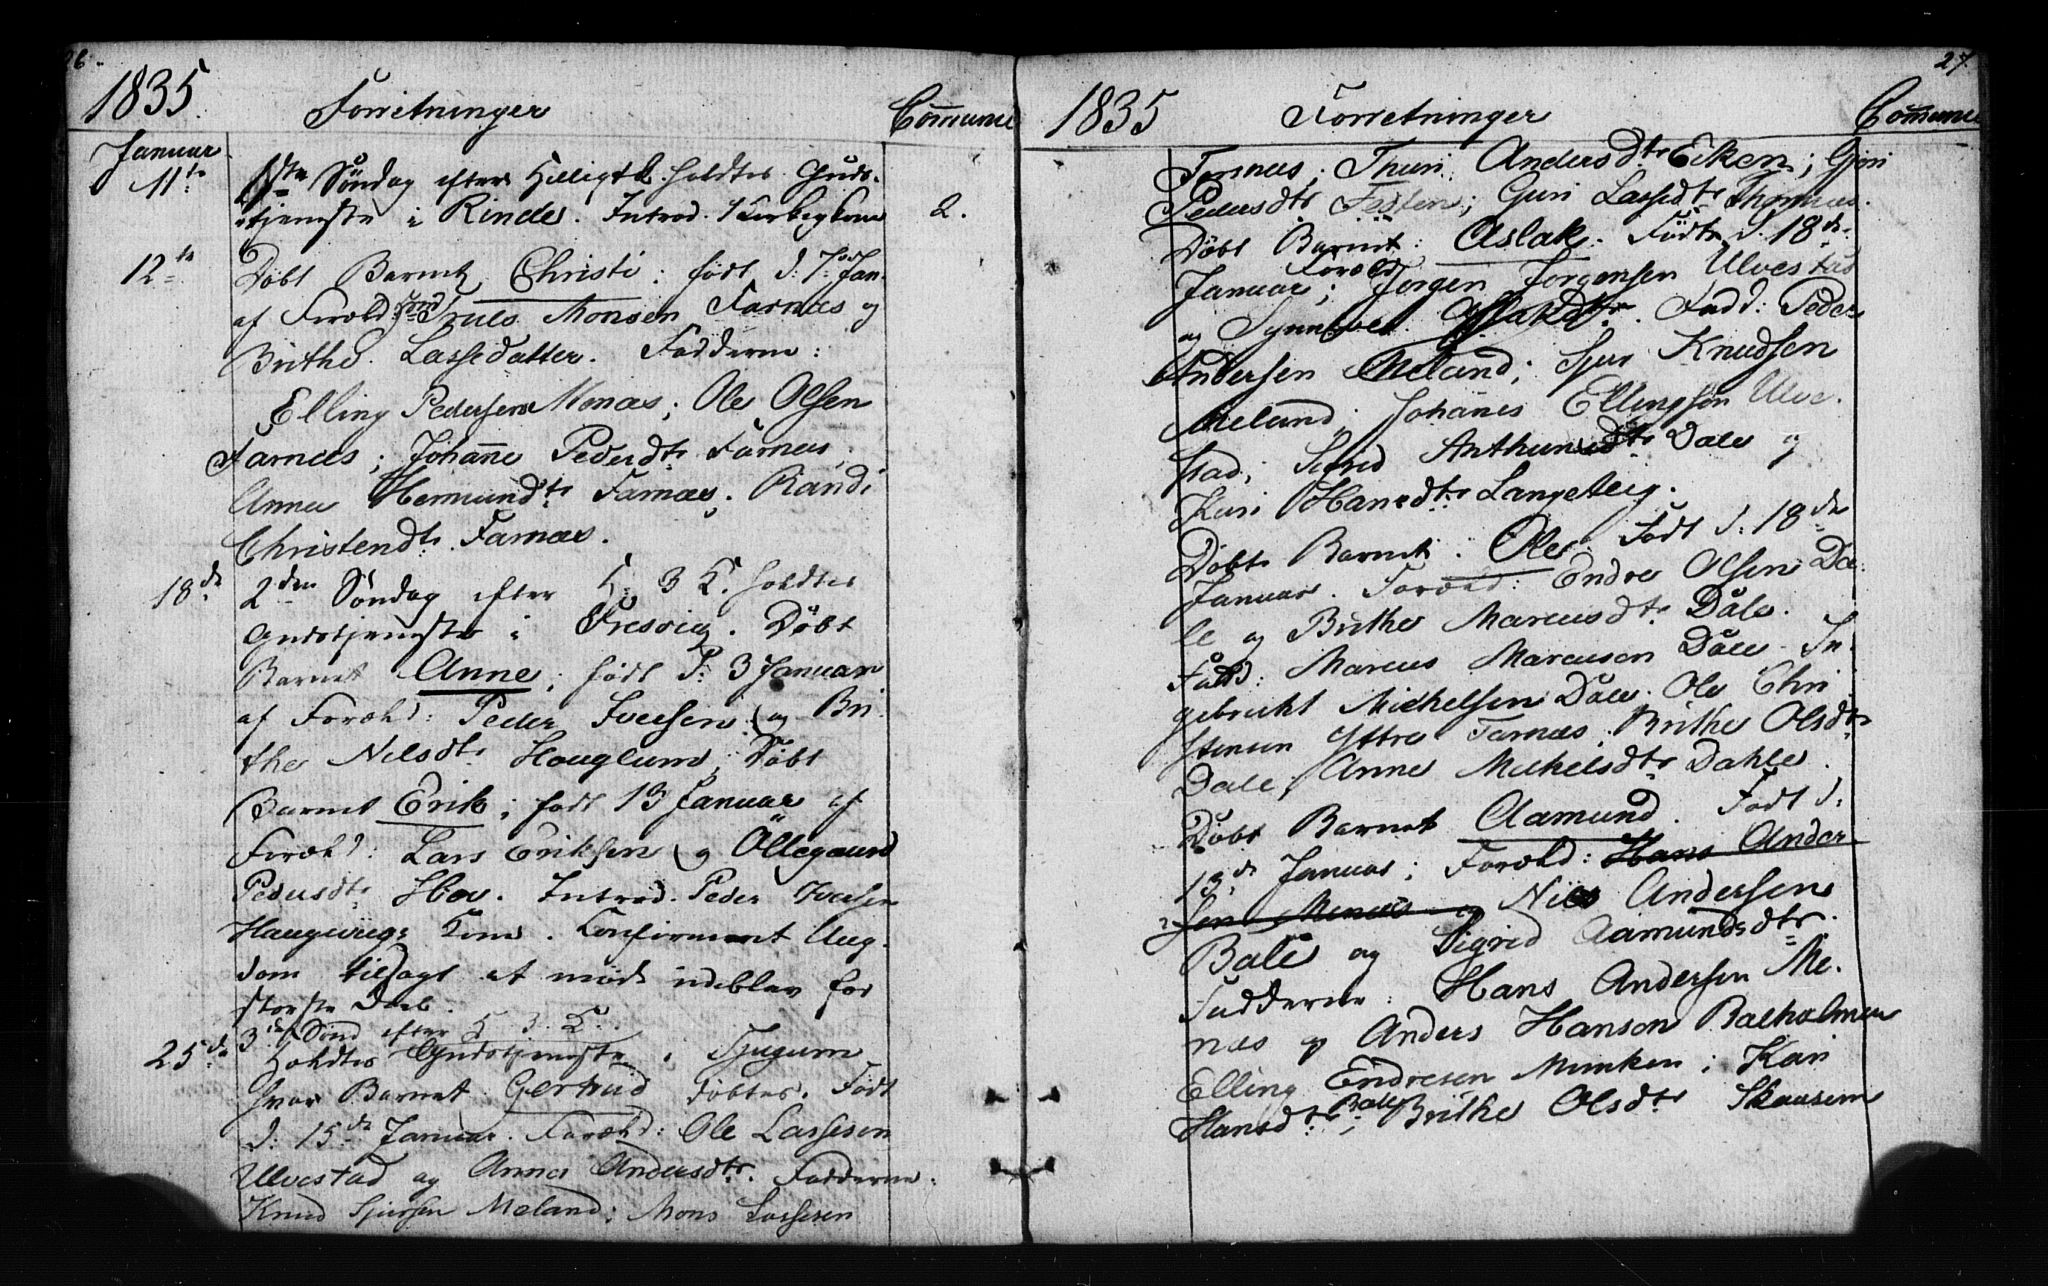 26.
1835. Forretninger Commune
Januar
11te 1ste Søndag efter Helligtk. holdtes Guds-
tjeneste i Rinde. Introd. 1 Kirkegkone 2.
12te Døbt Barnet Christi: født d: 7de Jan.
af Foræld: Truls Monsen Farnæs og
Brithe Lassedatter. Fadderne:
Elling Pedersen Menæs; Ole Olsen
Farnæs; Johanne Pedersdtr Farnæs,
Anna Hermundtr Farnæs; Randi
Christendtr Farnæs.
18de 2den Søndag efter H. 3 K. holdtes
Gudstjeneste i Fresvig. Døbt
Barnet Anne; født d: 3 Januar
af Foræld: Peder Iversen og Bri-
the Nilsdtr Houglum; Døbt
Barnet Erik; født 13 Januar af
Foræld: Lars Eriksen og Öllegaard
Pedersdtr Hov. Introd. Peder Iversen
Kone. Confirmeret Ung-
dom tilsagt at møde udeblev for
største Deel.
3die Sønd efter H. 3. K.
25de holdtes Gudstjeneste i Tjugum
hvor Barnet Gertrud døbtes. Født
d: 15de Januar. Foræld: Ole Lassesen
Ulvestad og Anna Andersdtr. Fadderne:
Knud Sjursen Meland; Mons Lassesen
27.
1835 Forretninger Commune
Farnæs; Thuri Andersdtr Eken; Gjøri
Pedersdtr; Guri Lassedtr
Døbt Barnet: Aslak. Født d. 18de
Januar; Foræld Jørgen Jørgensen Ulvestad
og Synneve Aslakdtr. Fadd: Peder
Andersen Meland; Sjur Knudsen
Meland; Johanes Ellingsøn Ulve-
stad; Sigrid Anthunsdtr Dale og
Kari Hansdtr Langeteig.
Døbt Barnet: Ole Født d: 18de
Januar. Foræld: Endre Olsen Da-
le og Brithe Marcusdtr Dale.
Fadd: Marcus Marcusen Dale. In-
gebricht Michelsen Dale. Ole Chri-
stensen Yttre Farnæs, Brithe Olsdtr
Dale, Anne Michelsdtr Dahle.
Døbt Barnet Aamund. Født d:
18de Januar; Foræld: Hans Ander-
sen Menæs og Nils Andersen
Bale og Sigrid Aamundsdtr.
Fadderne: Hans Andersen Me-
næs og Anders Hanson Balholmen
Elling Endresen Munken; Kari
Hansdtr Bale; Brithe Olsdtr Skaasem